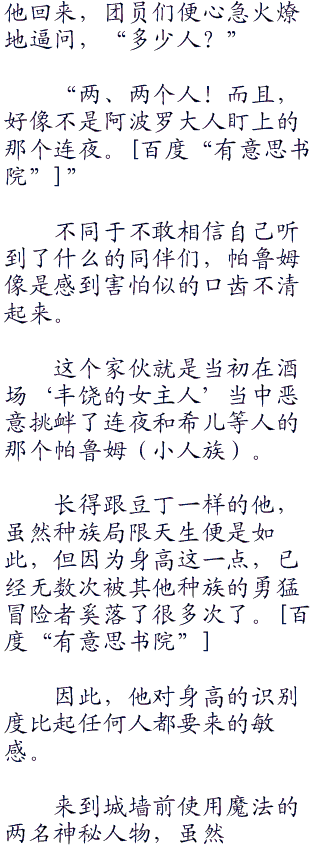 他回来，团员们便心急火燎
地逼问，“多少人？”
“两、两个人！而且，
好像不是阿波罗大人盯上的
那个连夜。[百度“有意思书
院”]”
不同于不敢相信自己听
到了什么的同伴们，帕鲁姆
像是感到害怕似的口齿不清
起来。
这个家伙就是当初在酒
场‘丰饶的女主人’当中恶
意挑衅了连夜和希儿等人的
那个帕鲁姆（小人族）。
长得跟豆丁一样的他，
虽然种族局限天生便是如
此，但因为身高这一点，已
经无数次被其他种族的勇猛
冒险者奚落了很多次了。[百
度“有意思书院”]
因此，他对身高的识别
度比起任何人都要来的敏
感。
来到城墙前使用魔法的
两名神秘人物，虽然